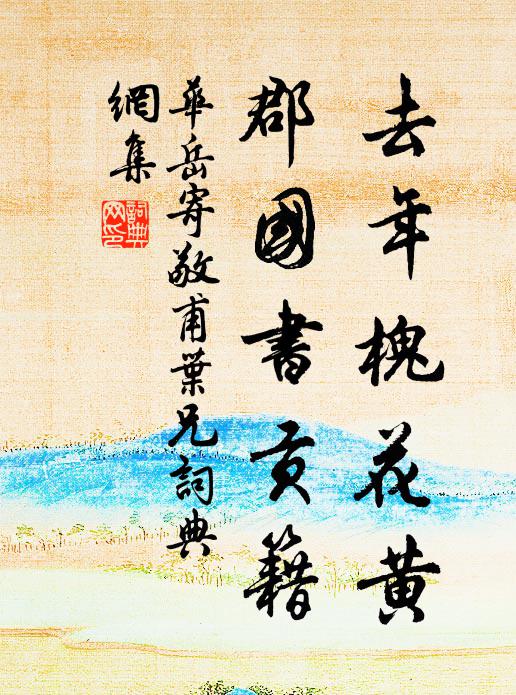 去年槐花黄
郡國書貢籍
華岳寄敬甫葉兄詞典
網集
詞典網印